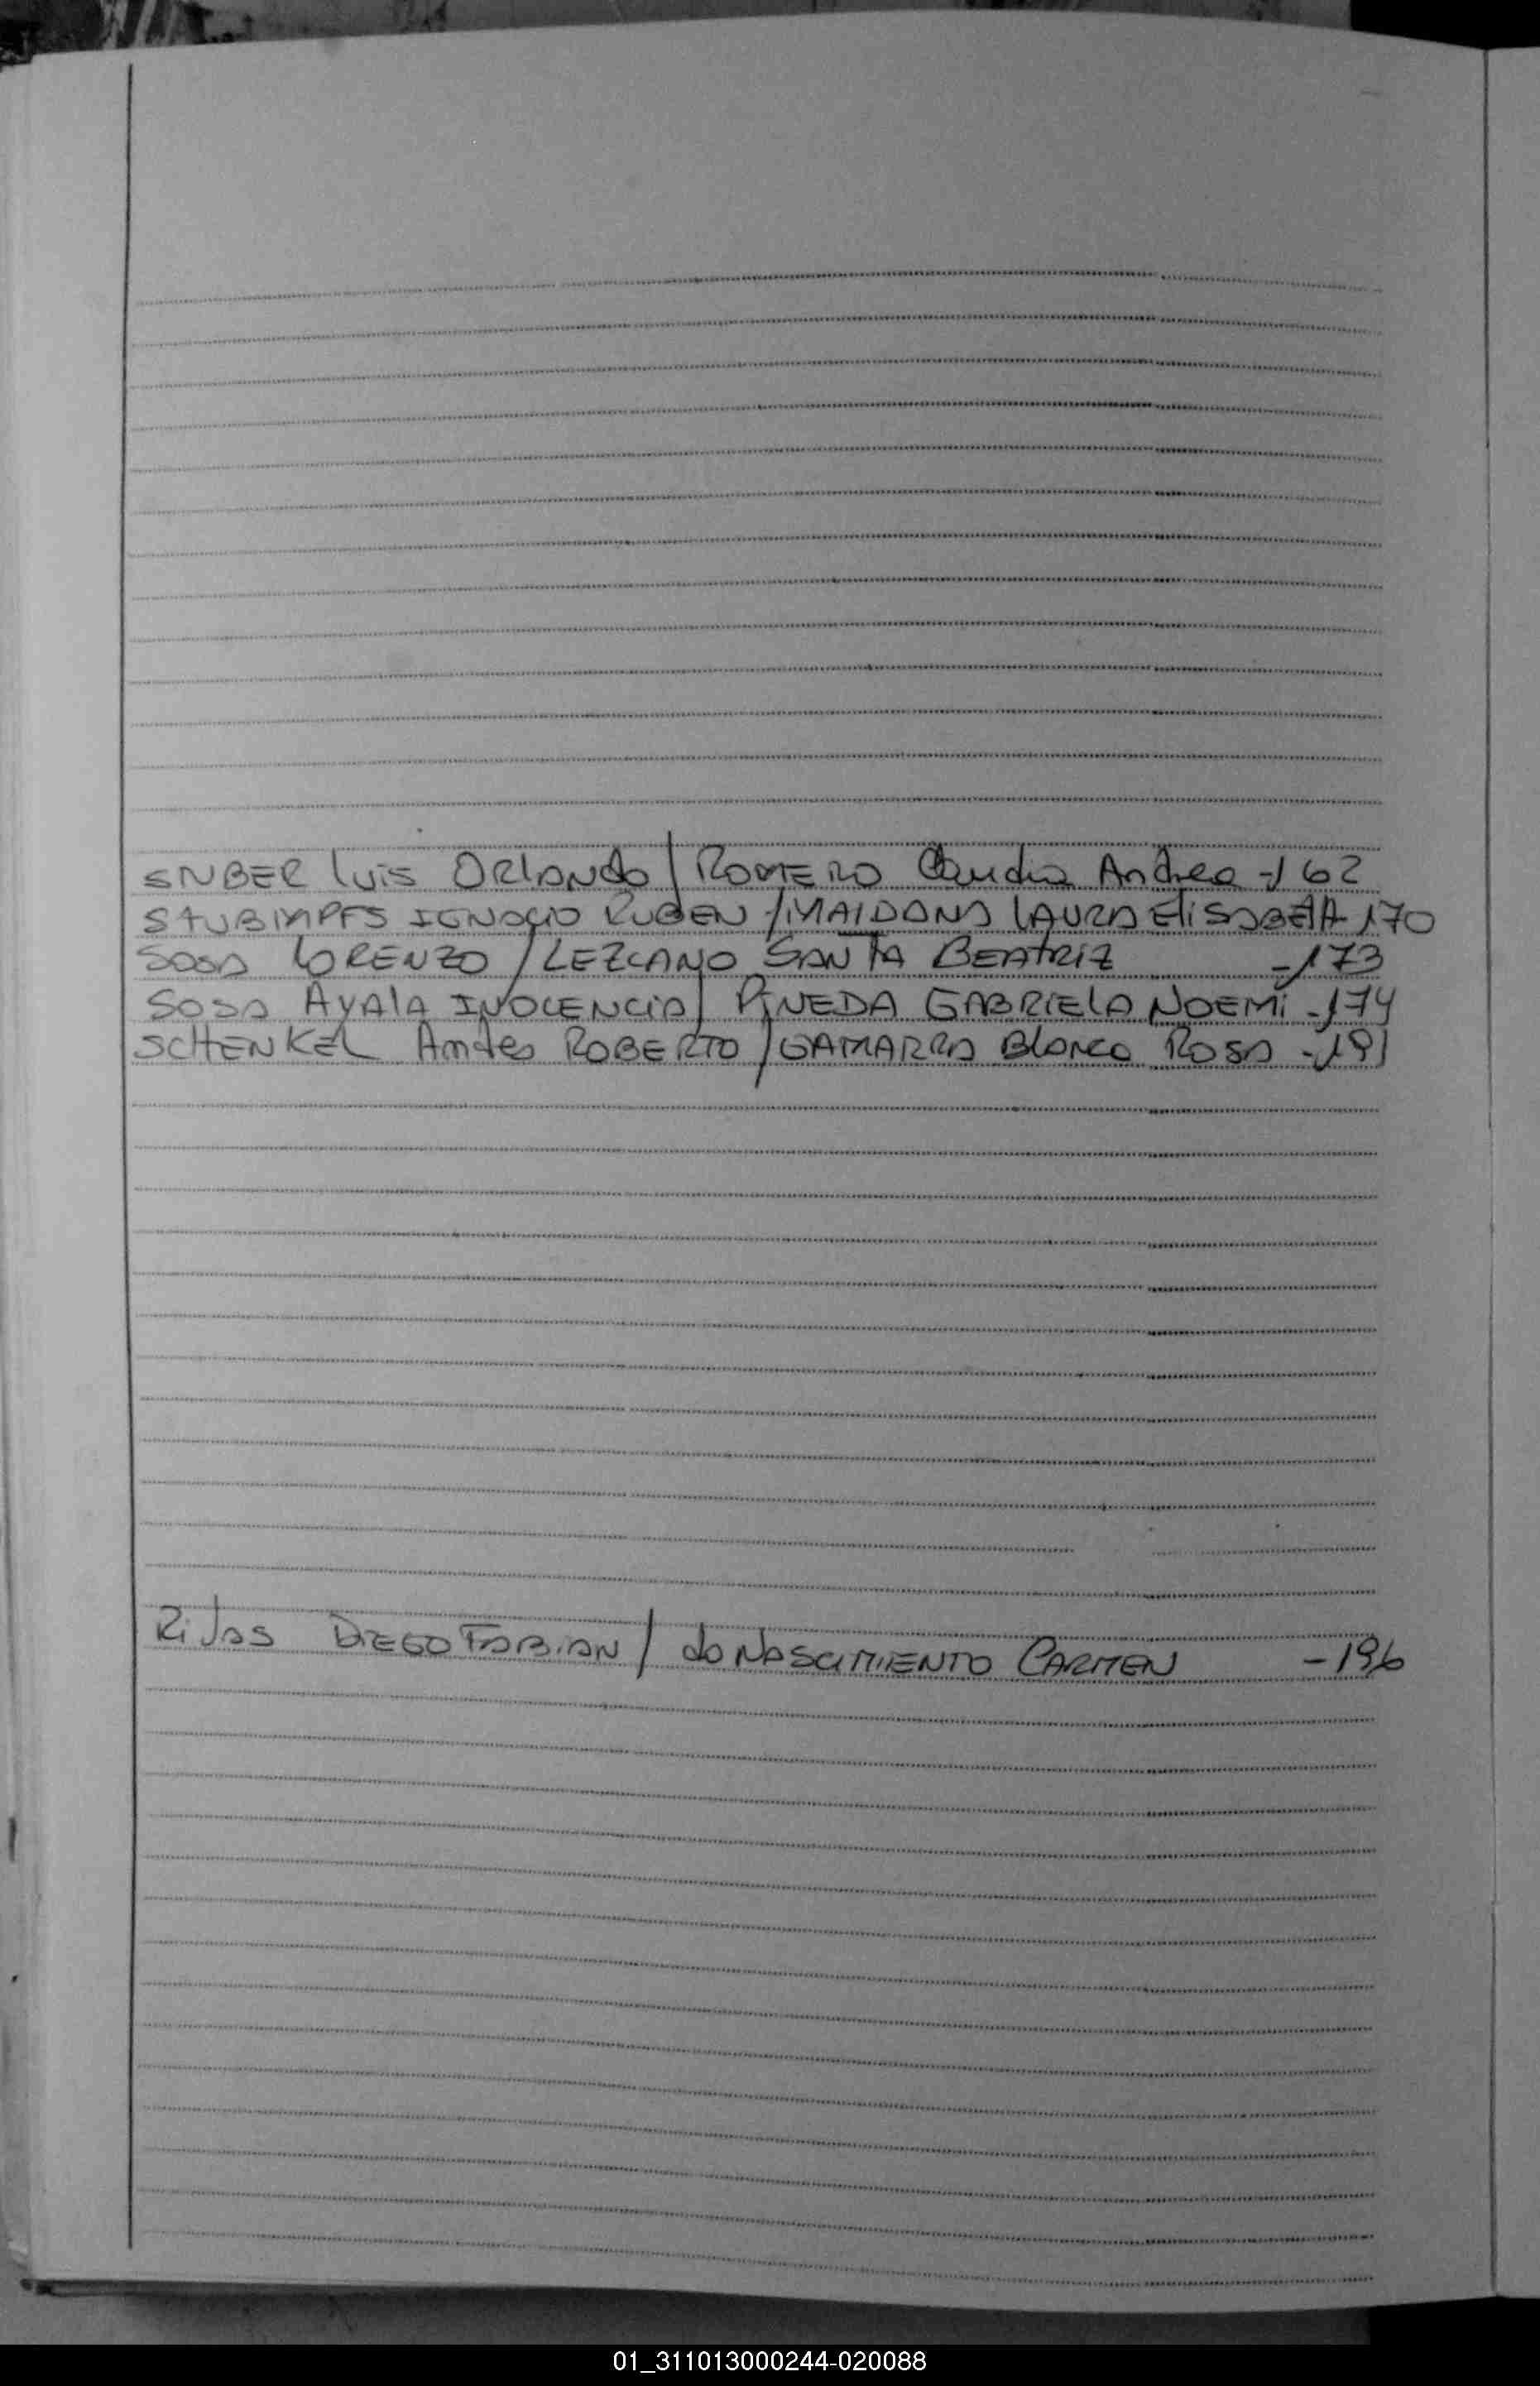 SNBER Luis ORLANDO / ROMERO Claudia Andrea - 162
STUBMPFS IGNACIO RUBEN / MAIDANA LAURA ELISABETH - 170
SOSA LORENZO / LEZCANO SANTA BEATRIZ - 173
SOSA AYALA INOCENCIA / PINEDA GABRIELA NOEMI - 174
SCHENKEL Andres ROBERTO / GAMARRA Blanca ROSA - 191
DIEGO FABIAN / do NASCIMIENTO CARMEN - 196
01_311013000244-020088